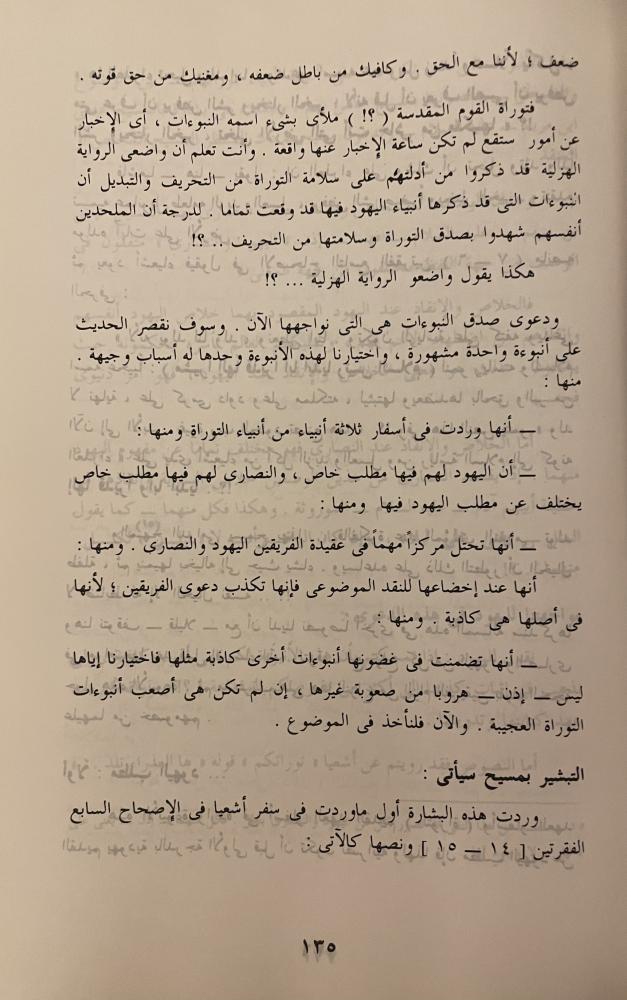 ضعف ؛ لأننا مع الحق . وكافيك من باطل ضعفه ، ومغنيك من حق قوته .
فتوراة القوم المقدسة ( ؟! ) ملأى بشىء اسمه النبوءات ، أى الإخبار
عن أمور ستقع لم تكن ساعة الإخبار عنها واقعة . وأنت تعلم أن واضعى الرواية
الهزلية قد ذكروا من أدلتهم على سلامة التوراة من التحريف والتبديل أن
النبوءات التى قد ذكرها أنبياء اليهود فيها قد وقعت تماما . لدرجة أن الملحدين
أنفسهم شهدوا بصدق التوراة وسلامتها من التحريف .. ؟!
هكذا يقول واضعو الرواية الهزلية ... ؟!
ودعوى صدق النبوءات هى التى نواجهها الآن . وسوف نقصر الحديث
على أنبوءة واحدة مشهورة ، واختيارنا لهذه الأنبوءة وحدها له أسباب وجيهة .
منها :
— أنها وردت فى أسفار ثلاثة أنبياء من أنبياء التوراة ومنها :
— أن اليهود لهم فيها مطلب خاص ، والنصارى لهم فيها مطلب خاص
يختلف عن مطلب اليهود فيها ومنها :
— أنها تحتل مركزاً مهماً فى عقيدة الفريقين اليهود والنصارى . ومنها :
أنها عند إخضاعها للنقد الموضوعى فإنها تكذب دعوى الفريقين ؛ لأنها
فى أصلها هى كاذبة . ومنها :
— أنها تضمنت فى غضونها أنبوءات أخرى كاذبة مثلها فاختيارنا إياها
ليس — إذن — هروبا من صعوبة غيرها ، إن لم تكن هى أصعب أنبوءات
التوراة العجيبة . والآن فلنأخذ فى الموضوع .
التبشير بمسيح سيأتى :
وردت هذه البشارة أول ماوردت فى سفر أشعيا فى الإصحاح السابع
الفقرتين [ ١٤ — ١٥ ] ونصها كالآتى :
١٣٥